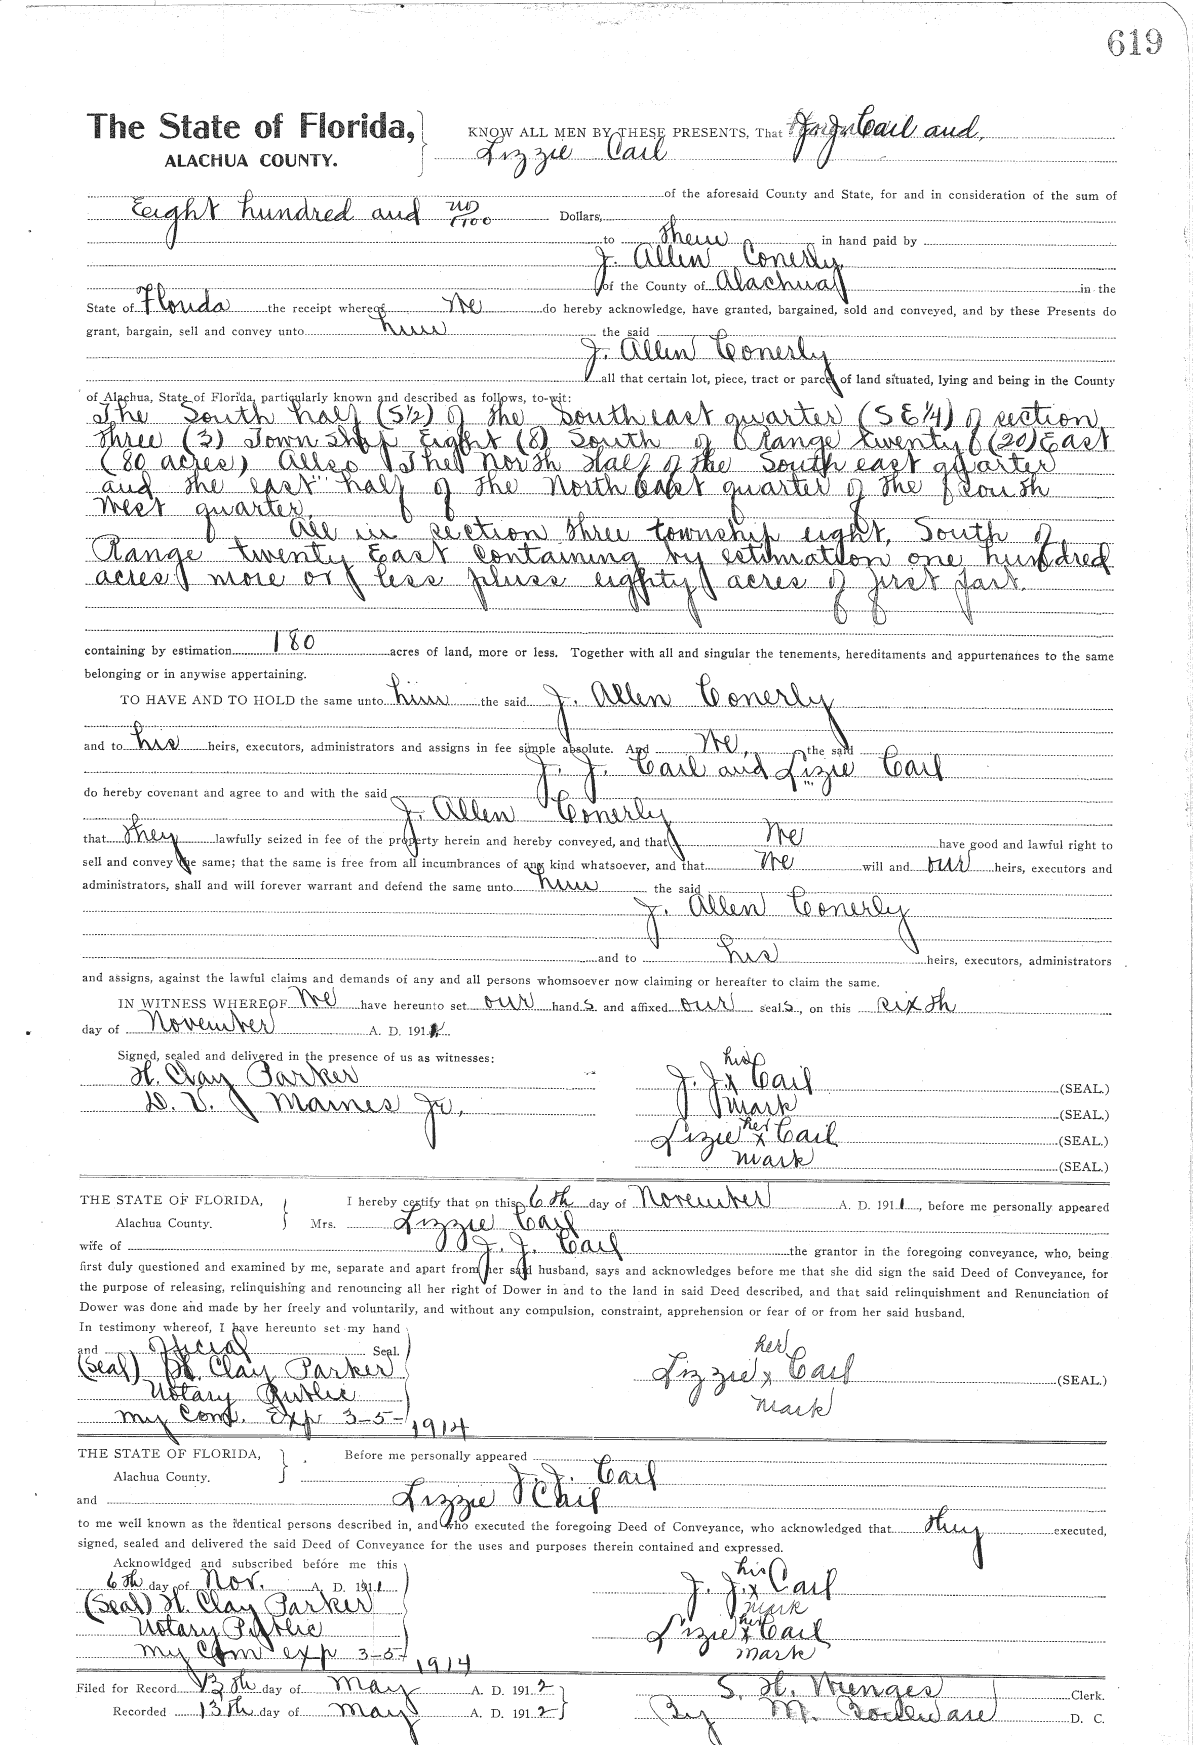 619
The State of Florida,
ALACHUA COUNTY.
KNOW ALL MEN BY THESE PRESENTS, That J. J. Cail and,
Lizzie Cail
of the aforesaid County and State, for and in consideration of the sum of
Eight hundred and no/100 Dollars,
to them in hand paid by
J. Allen Conerly
of the County of Alachua in the
State of Florida the receipt whereof We do hereby acknowledge, have granted, bargained, sold and conveyed, and by these Presents do
grant, bargain, sell and convey unto him the said
J. Allen Conerly
all that certain lot, piece, tract or parcel of land situated, lying and being in the County
of Alachua, State of Florida, particularly known and described as follows, to-wit:
The South half (S1/2) of the South east quarter (S E 1/4) of section
three (3) Town Ship Eight (8) South of Range twenty (20) East
(80 acres) Allso The North Half of the South east quarter
and the east half of the North East quarter of the South
West quarter.
All in section three township eight, South of
Range twenty East containing by estimation one hundred
acres more or less pluss eighty acres of first part.
containing by estimation 180 acres of land, more or less. Together with all and singular the tenements, hereditaments and appurtenances to the same
belonging or in anywise appertaining.
TO HAVE AND TO HOLD the same unto him the said J. Allen Conerly
and to his heirs, executors, administrators and assigns in fee simple absolute. And We, the said
J. J. Cail and Lizie Cail
do hereby covenant and agree to and with the said
J. Allen Conerly
that they lawfully seized in fee of the property herein and hereby conveyed, and that We have good and lawful right to
sell and convey the same; that the same is free from all incumbrances of any kind whatsoever, and that We will and our heirs, executors and
administrators, shall and will forever warrant and defend the same unto him the said
J. Allen Conerly
and to his heirs, executors, administrators
and assigns, against the lawful claims and demands of any and all persons whomsoever now claiming or hereafter to claim the same.
IN WITNESS WHEREOF We have hereunto set our hands and affixed our seals, on this sixth
day of November A. D. 191
Signed, sealed and delivered in the presence of us as witnesses:
H. Clay Parker
D. V. Maines Jr.
his
J. J. x Cail (SEAL.)
mark (SEAL.)
her
Lizie x Cail (SEAL.)
mark (SEAL.)
THE STATE OF FLORIDA,
Alachua County.
I hereby certify that on this 6th day of November A. D. 1911, before me personally appeared
Mrs. Lizzie Cail
wife of J. J. Cail the grantor in the foregoing conveyance, who, being
first duly questioned and examined by me, separate and apart from her said husband, says and acknowledges before me that she did sign the said Deed of Conveyance, for
the purpose of releasing, relinquishing and renouncing all her right of Dower in and to the land in said Deed described, and that said relinquishment and Renunciation of
Dower was done and made by her freely and voluntarily, and without any compulsion, constraint, apprehension or fear of or from her said husband.
In testimony whereof, I have hereunto set my hand
and official Seal.
(Seal) H. Clay Parker
Notary Public
My Com. Exp 3-5-1914
her
Lizzie x Cail (SEAL.)
mark
THE STATE OF FLORIDA,
Alachua County.
Before me personally appeared
J. J. Cail
and Lizzie Cail
to me well known as the identical persons described in, and who executed the foregoing Deed of Conveyance, who acknowledged that they executed,
signed, sealed and delivered the said Deed of Conveyance for the uses and purposes therein contained and expressed.
Acknowldged and subscribed before me this
6th day of Nov. A. D. 1911
(Seal) H. Clay Parker
Notary Public
My Com exp 3-5-1914
his
J. J. x Cail
mark
her
Lizie x Cail
mark
Filed for Record 13th day of May A. D. 1912
Recorded 13th day of May A. D. 1912
S. H. Wienges Clerk.
By M. Bouleware D. C.